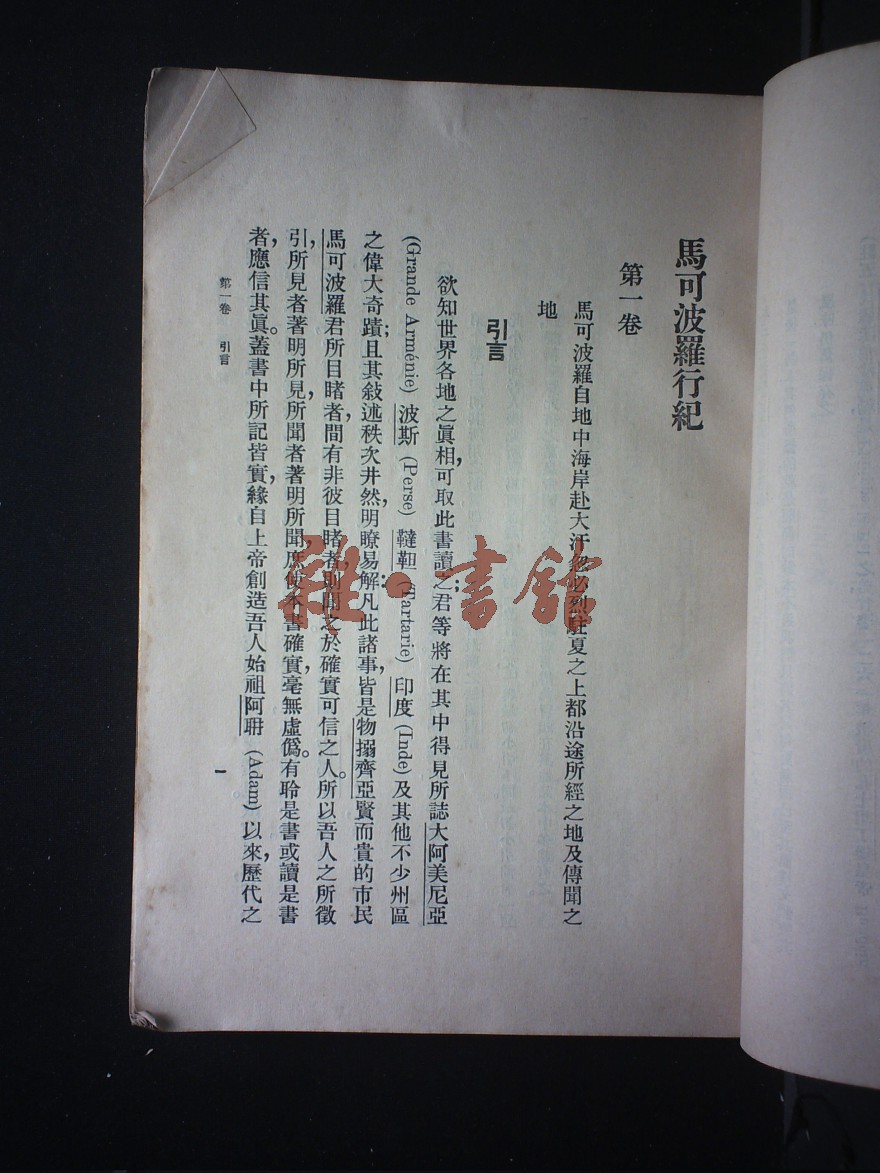 馬可波羅行紀
第一卷
馬可波羅自地中海岸赴大汗忽必烈駐夏之上都沿途所經之地及傳聞之
地
引言
欲知世界各地之眞相，可取此書讀之；君等將在其中得見所誌大阿美尼亞
(Grande Arménie) 波斯 (Perse) 韃靼 (Tartarie) 印度 (Inde) 及其他不少州區
之偉大奇蹟；且其敍述秩次井然，明瞭易解；凡此諸事，皆是物搦齊亞賢而貴的市民
馬可波羅君所目睹者，間有非彼目睹者，則聞之於確實可信之人。所以吾人之所徵
引，所見者著明所見，所聞者著明所聞，庶使本書確實，毫無虛僞。有聆是書或讀是書
者，應信其眞。蓋書中所記皆實，緣自上帝創造吾人始祖阿聃 (Adam) 以來，歷代之
第一卷 引言
一
雜·書館